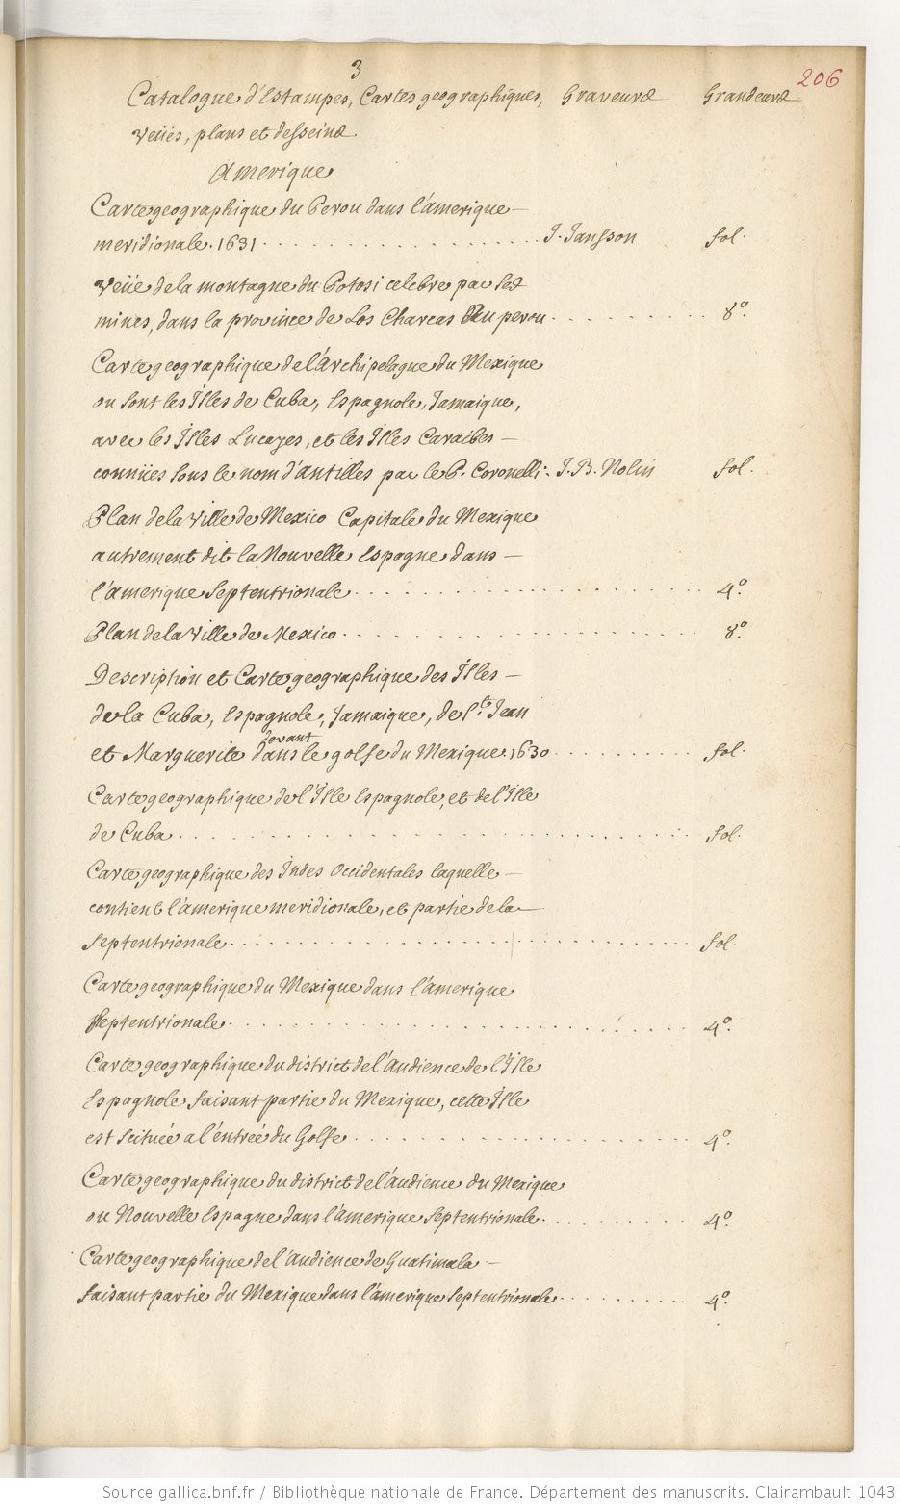 3
206
Catalogue d'Estampes, Cartes geographiques, Graveurs Grandeurs
Veües, plans et desseins
Amerique
Carte geographique du Perou dans l'amerique
meridionale. 1631. J. Jansson fol.
Veüe de la montagne du Potosi celebre par ses
mines, dans la province de Los Charcas au perou. 8º.
Carte geographique de l'Archipelague du Mexique
ou sont les Isles de Cuba, Espagnole, Jamaique,
avec les Isles Lucayes, et les Isles Caraibes
connües sous le nom d'antilles par le P. Coronelli. J. B. Nolin fol.
Plan de la Ville de Mexico Capitale du Mexique
autrement dit la Nouvelle Espagne dans
l'amerique Septentrionale. 4º.
Plan de la Ville de Mexico. 8º.
Description et Carte geographique des Isles
de la Cuba, Espagnole, Jamaique, de St. Jean
devant
et Marguerite dans le golfe du Mexique 1630. fol.
Carte geographique de l'Isle Espagnole, et de l'Isle
de Cuba. fol.
Carte geographique des Indes Occidentales laquelle
contient l'amerique meridionale, et partie de la
Septentrionale. fol
Carte geographique du Mexique dans l'amerique
Septentrionale. 4º.
Carte geographique du district de l'Audience de l'Isle
Espagnole faisant partie du Mexique, cette Isle
est scituée a l'entrée du Golfe. 4º.
Carte geographique du district de l'audience du Mexique
ou Nouvelle Espagne dans l'amerique Septentrionale. 4º.
Carte geographique de l'audience de Guatimala
faisant partie du Mexique dans l'amerique Septentrionale. 4º.
Source gallica.bnf.fr / Bibliothèque nationale de France. Département des manuscrits. Clairambault 1043